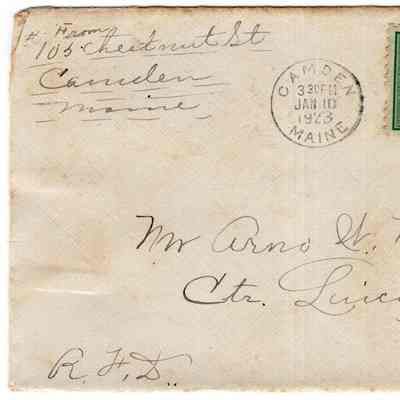 # From
105 Chestnut St
Camden
Maine
CAMDEN
3 30 PM
JAN 10
1923
MAINE
Mr Arno W.
Ctr.
R. F. D.